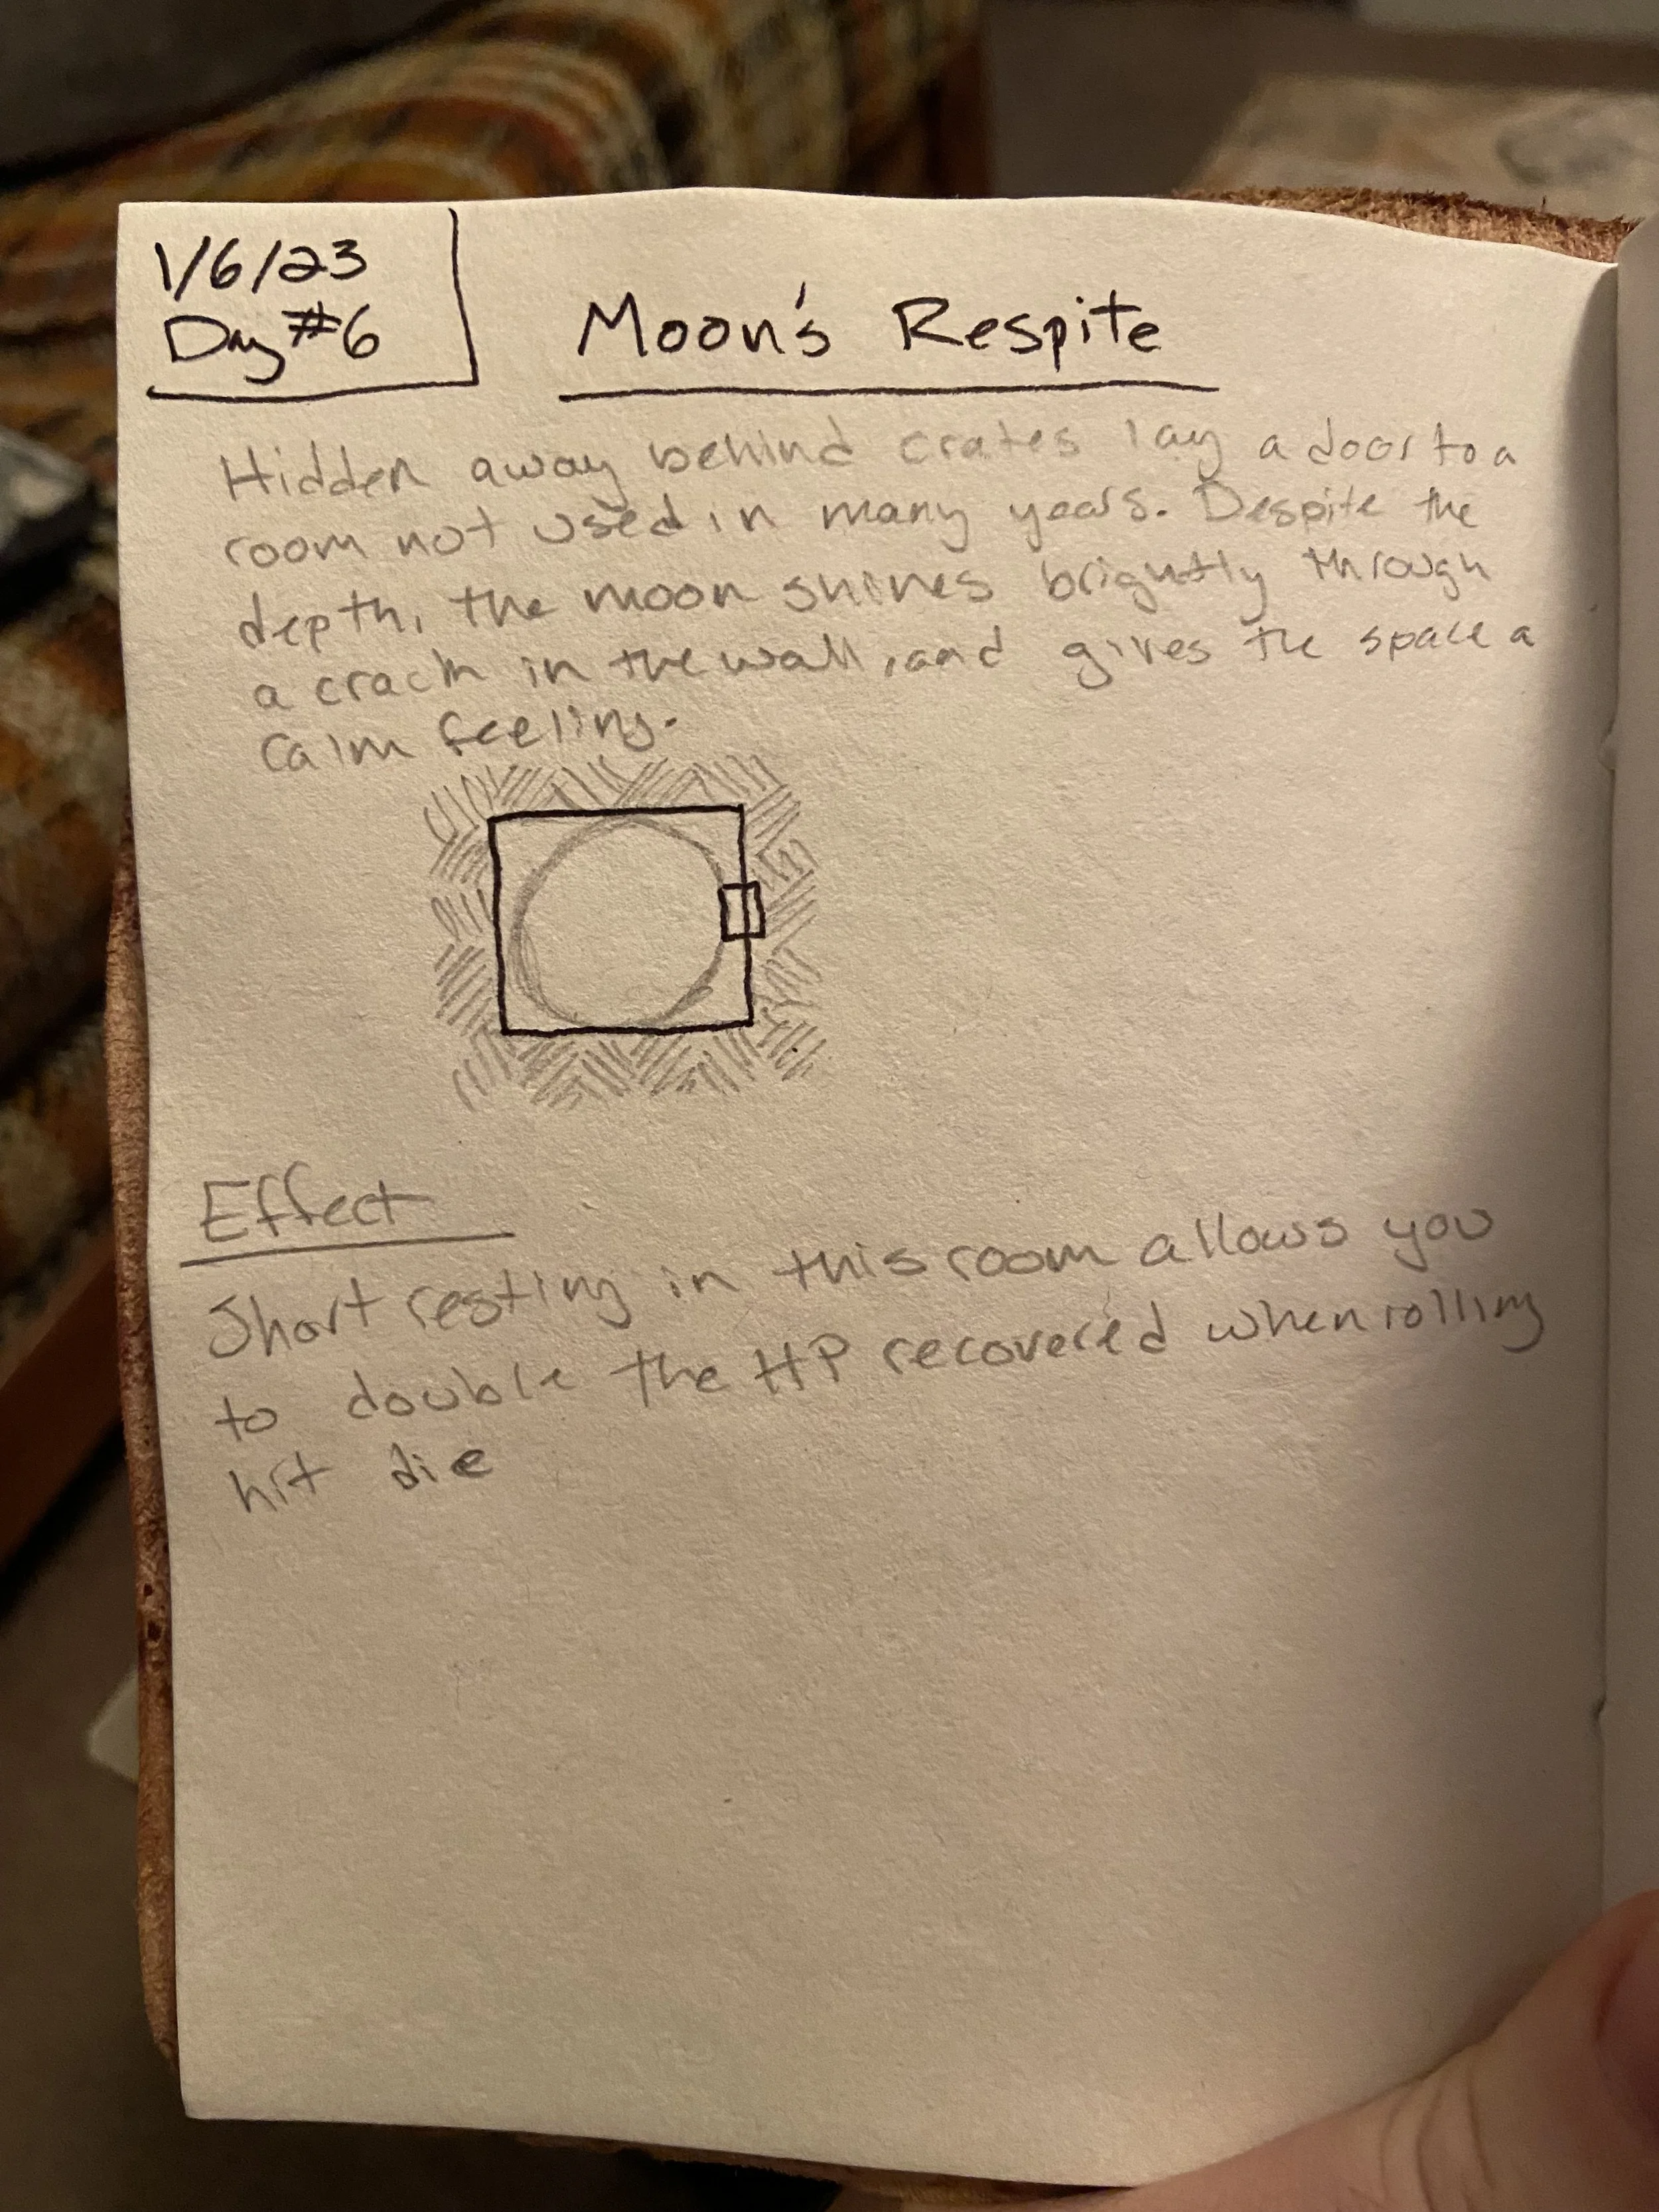 1/6/23
Day #6
Moon's Respite
Hidden away behind crates lay a door to a
room not used in many years. Despite the
depth, the moon shines brightly through
a crack in the wall, and gives the space a
calm feeling.
Effect
Short resting in this room allows you
to double the HP recovered when rolling
hit die